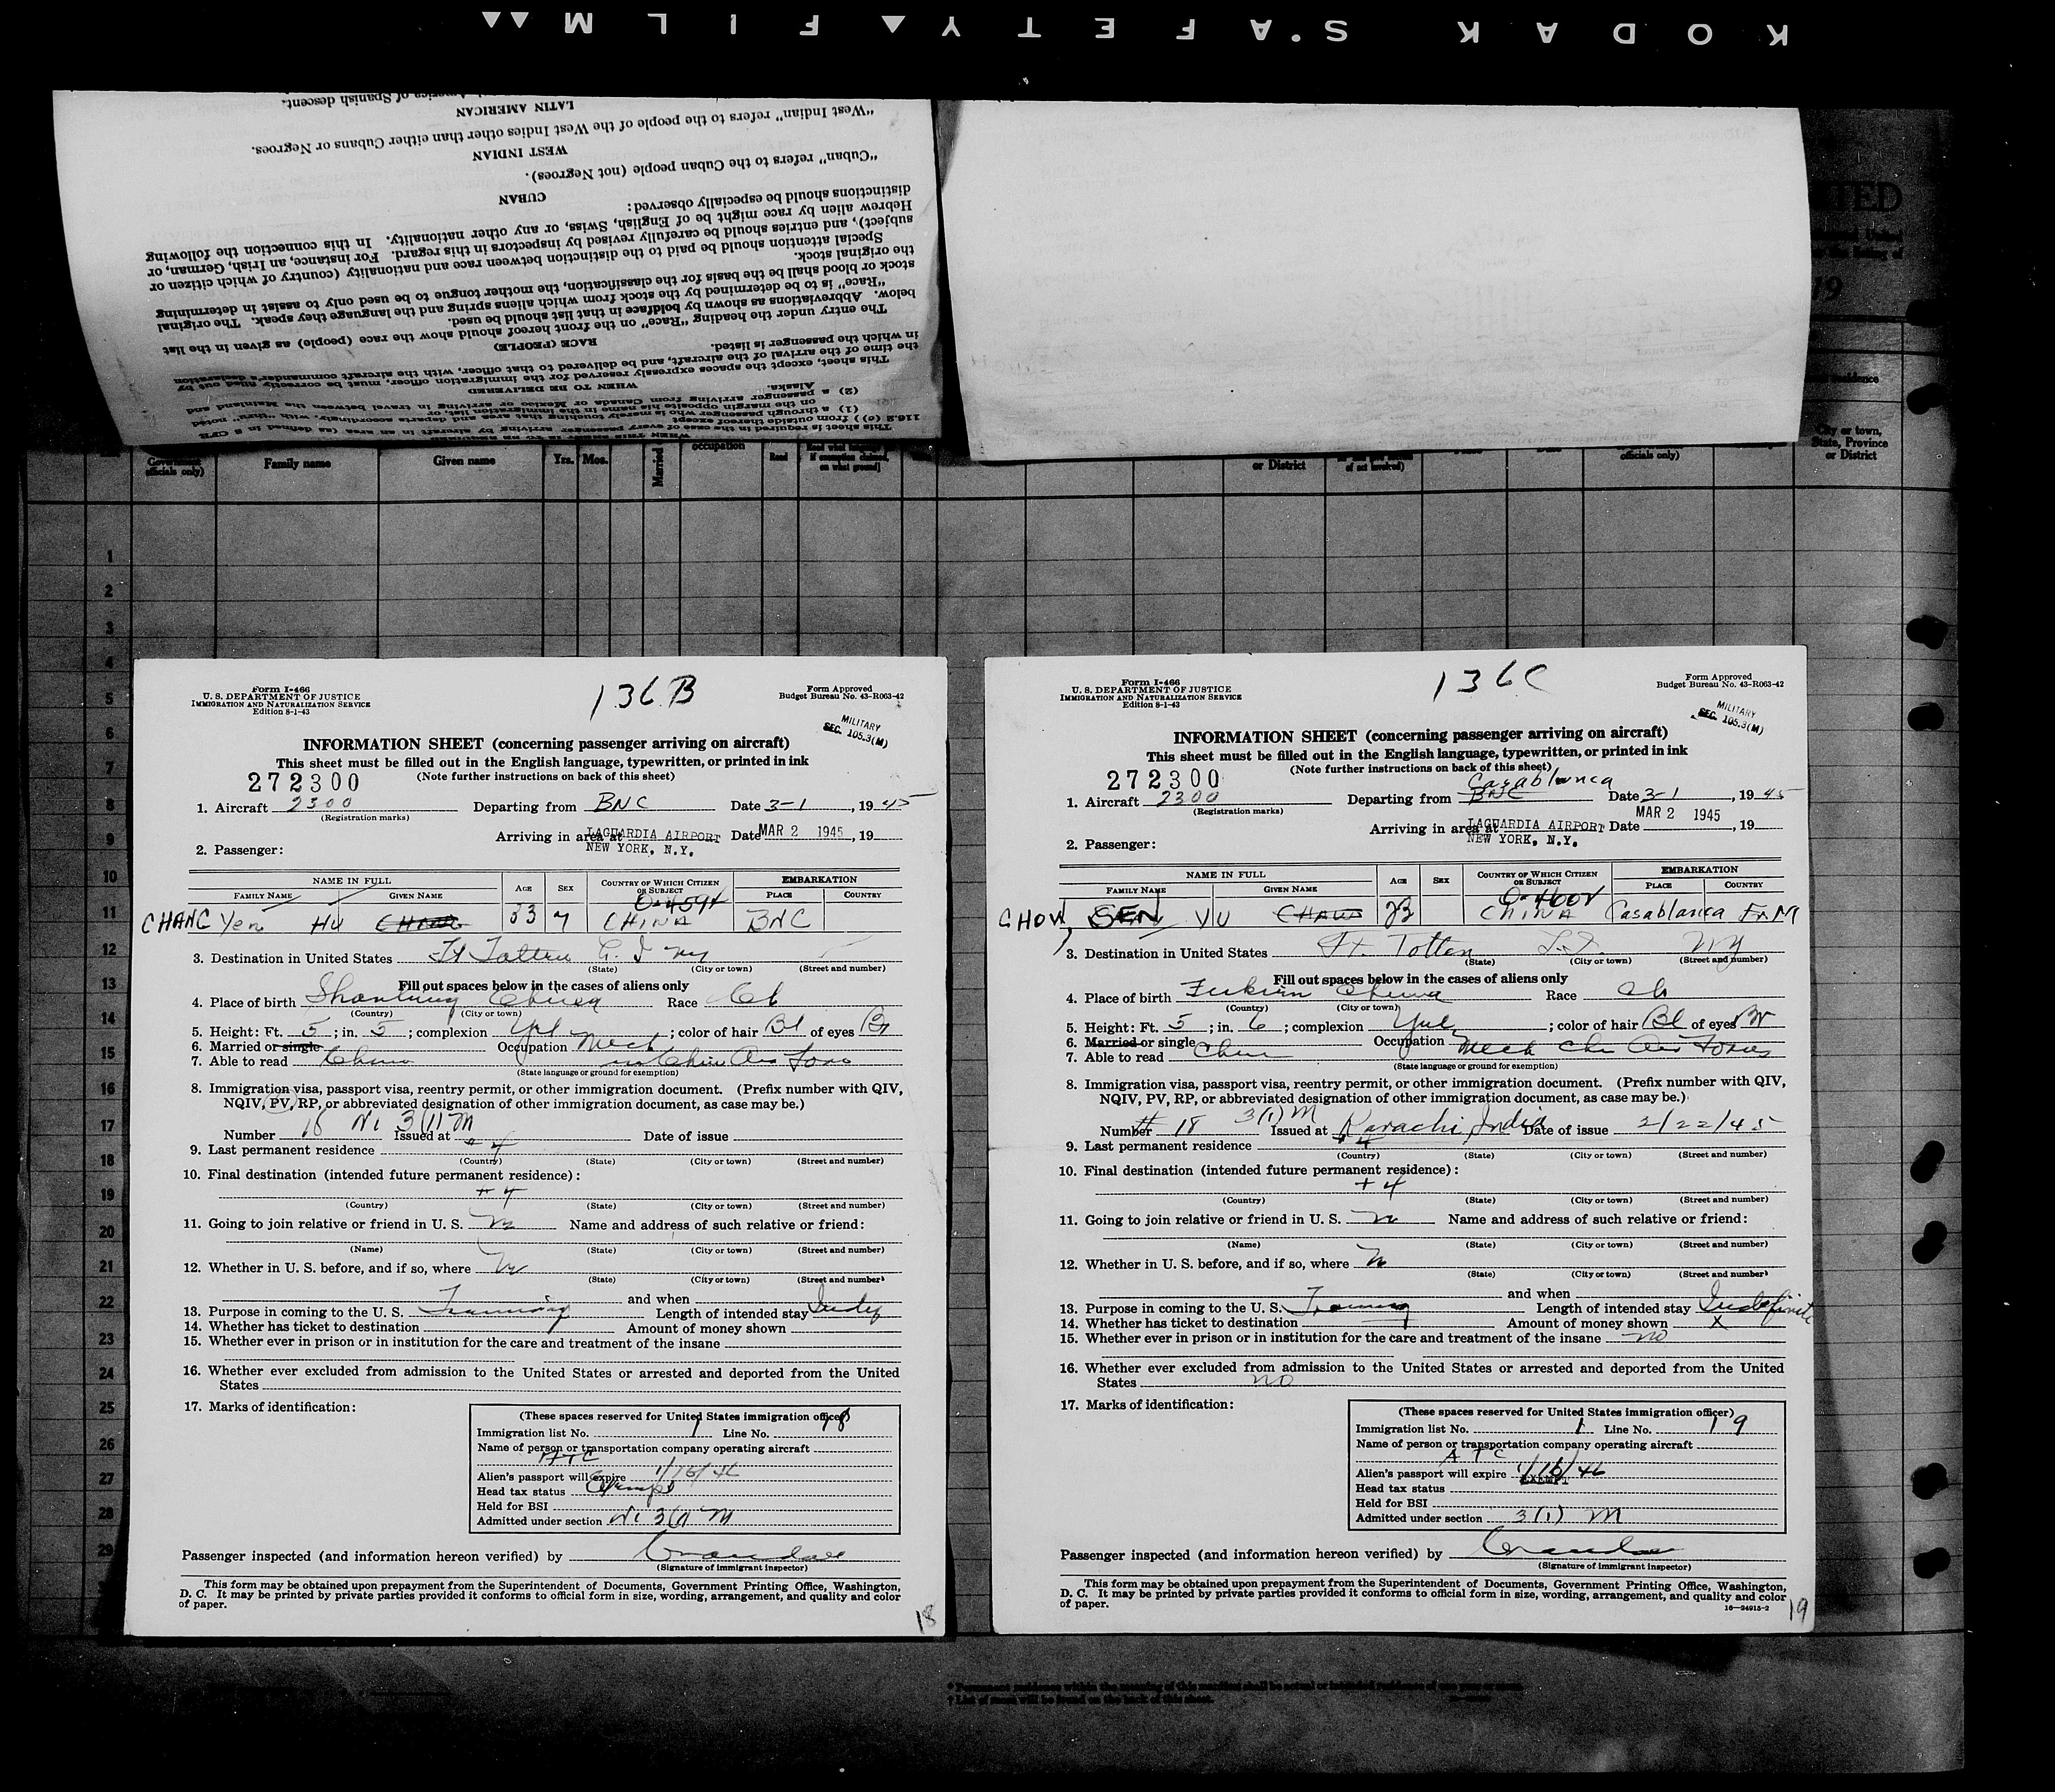 KODAK SAFETY FILM
This sheet is required in the case of every passenger arriving by aircraft in an area (as defined in 8 CFR
116.2 (c)) from outside thereof except
(1) a through passenger who is merely touching that area and departs accordingly, with "thru" noted
on the margin opposite his name in the immigration list, or
(2) a passenger arriving from Canada or Mexico or arriving in travel between the Mainland and
Alaska.
WHEN TO BE DELIVERED
This sheet, except the spaces expressly reserved for the immigration officer, must be correctly filled out by
the time of the arrival of the aircraft, and be delivered to that officer, with the aircraft commander's declaration
in which the passenger is listed.
RACE (PEOPLE)
The entry under the heading "Race" on the front hereof should show the race (people) as given in the list
below. Abbreviations as shown by boldface in that list should be used.
"Race" is to be determined by the stock from which aliens spring and the language they speak. The original
stock or blood shall be the basis for the classification, the mother tongue to be used only to assist in determining
the original stock.
Special attention should be paid to the distinction between race and nationality (country of which citizen or
subject), and entries should be carefully revised by inspectors in this regard. For instance, an Irish, German, or
Hebrew alien by race might be of English, Swiss, or any other nationality. In this connection the following
distinctions should be especially observed:
CUBAN
"Cuban" refers to the Cuban people (not Negroes).
WEST INDIAN
"West Indian" refers to the people of the West Indies other than either Cubans or Negroes.
LATIN AMERICAN
of Spanish descent.
officials only) Family name Given name Yrs. Mos. Married occupation Read or District officials only) City or town, State, Province or District
1
2
3
4
5
6
7
8
9
10
11
12
13
14
15
16
17
18
19
20
21
22
23
24
25
26
27
28
29
136B
Form I-466
U. S. DEPARTMENT OF JUSTICE
IMMIGRATION AND NATURALIZATION SERVICE
Edition 8-1-43
Form Approved
Budget Bureau No. 43-R063-42
MILITARY
SEC. 105.3(M)
INFORMATION SHEET (concerning passenger arriving on aircraft)
This sheet must be filled out in the English language, typewritten, or printed in ink
(Note further instructions on back of this sheet)
272300
1. Aircraft 2300 Departing from BNC Date 3-1, 1945
(Registration marks)
Arriving in area at LAGUARDIA AIRPORT Date MAR 2 1945, 19
NEW YORK, N.Y.
2. Passenger:
NAME IN FULL AGE SEX COUNTRY OF WHICH CITIZEN OR SUBJECT EMBARKATION
FAMILY NAME GIVEN NAME PLACE COUNTRY
CHANG Yen HU 33 CHINA BNC
3. Destination in United States Ft Totten L. I NY
(State) (City or town) (Street and number)
Fill out spaces below in the cases of aliens only
4. Place of birth Shantung China Race Ch
(Country) (City or town)
5. Height: Ft. 5; in. 5; complexion Yel; color of hair Bl of eyes Br
6. Married or single Occupation Mech
7. Able to read Chin Chin Air Forc
(State language or ground for exemption)
8. Immigration visa, passport visa, reentry permit, or other immigration document. (Prefix number with QIV,
NQIV, PV, RP, or abbreviated designation of other immigration document, as case may be.)
Number 16 Ni 3(1) M Issued at Date of issue
9. Last permanent residence
(Country) (State) (City or town) (Street and number)
10. Final destination (intended future permanent residence):
+ 4
(Country) (State) (City or town) (Street and number)
11. Going to join relative or friend in U. S. No Name and address of such relative or friend:
(Name) (State) (City or town) (Street and number)
12. Whether in U. S. before, and if so, where No
(State) (City or town) (Street and number)
and when
13. Purpose in coming to the U. S. Training Length of intended stay Indef
14. Whether has ticket to destination Amount of money shown
15. Whether ever in prison or in institution for the care and treatment of the insane
16. Whether ever excluded from admission to the United States or arrested and deported from the United
States
17. Marks of identification:
(These spaces reserved for United States immigration officer)
Immigration list No. 1 Line No. 18
Name of person or transportation company operating aircraft
ATC
Alien's passport will expire 1/15/46
Head tax status Exempt
Held for BSI
Admitted under section Ni 3(1) M
Passenger inspected (and information hereon verified) by
(Signature of immigrant inspector)
This form may be obtained upon prepayment from the Superintendent of Documents, Government Printing Office, Washington,
D. C. It may be printed by private parties provided it conforms to official form in size, wording, arrangement, and quality and color
of paper.
18
136C
Form I-466
U. S. DEPARTMENT OF JUSTICE
IMMIGRATION AND NATURALIZATION SERVICE
Edition 8-1-43
Form Approved
Budget Bureau No. 43-R063-42
MILITARY
SEC. 105.3(M)
INFORMATION SHEET (concerning passenger arriving on aircraft)
This sheet must be filled out in the English language, typewritten, or printed in ink
(Note further instructions on back of this sheet)
272300 Casablanca
1. Aircraft 2300 Departing from BNC Date 3-1, 1945
(Registration marks)
MAR 2 1945
Arriving in area at LAGUARDIA AIRPORT Date , 19
NEW YORK, N.Y.
2. Passenger:
NAME IN FULL AGE SEX COUNTRY OF WHICH CITIZEN OR SUBJECT EMBARKATION
FAMILY NAME GIVEN NAME PLACE COUNTRY
CHOW, SEN YU 23 CHINA Casablanca Fr M
3. Destination in United States Ft. Totten L.I. NY
(State) (City or town) (Street and number)
Fill out spaces below in the cases of aliens only
4. Place of birth Fukien China Race Ch
(Country) (City or town)
5. Height: Ft. 5; in. 6; complexion Yel; color of hair Bl of eyes Br
6. Married or single Occupation Mech Chi Air Forces
7. Able to read Chin
(State language or ground for exemption)
8. Immigration visa, passport visa, reentry permit, or other immigration document. (Prefix number with QIV,
NQIV, PV, RP, or abbreviated designation of other immigration document, as case may be.)
Number # 18 3(1) M Issued at Karachi, India Date of issue 2/22/45
9. Last permanent residence
(Country) (State) (City or town) (Street and number)
10. Final destination (intended future permanent residence):
+ 4
(Country) (State) (City or town) (Street and number)
11. Going to join relative or friend in U. S. No Name and address of such relative or friend:
(Name) (State) (City or town) (Street and number)
12. Whether in U. S. before, and if so, where No
(State) (City or town) (Street and number)
and when
13. Purpose in coming to the U. S. Training Length of intended stay Indefinite
14. Whether has ticket to destination Amount of money shown X
15. Whether ever in prison or in institution for the care and treatment of the insane no
16. Whether ever excluded from admission to the United States or arrested and deported from the United
States no
17. Marks of identification:
(These spaces reserved for United States immigration officer)
Immigration list No. 1 Line No. 19
Name of person or transportation company operating aircraft
ATC
Alien's passport will expire 1/15/46
EXEMPT
Head tax status
Held for BSI
Admitted under section 3(1) M
Passenger inspected (and information hereon verified) by
(Signature of immigrant inspector)
This form may be obtained upon prepayment from the Superintendent of Documents, Government Printing Office, Washington,
D. C. It may be printed by private parties provided it conforms to official form in size, wording, arrangement, and quality and color
of paper.
16—24915-2
19